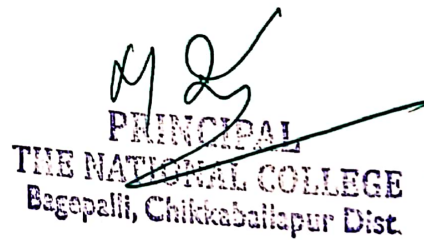 PRINCIPAL
THE NATIONAL COLLEGE
Bagepalli, Chikkaballapur Dist.